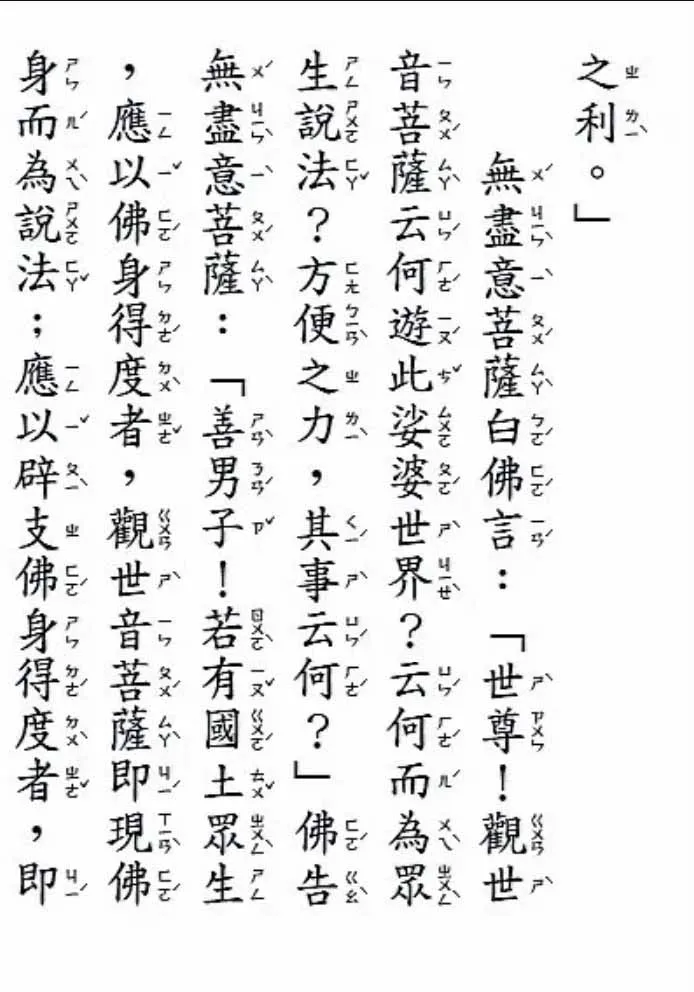 之利。」
無盡意菩薩白佛言：「世尊！觀世
音菩薩云何遊此娑婆世界？云何而為眾
生說法？方便之力，其事云何？」佛告
無盡意菩薩：「善男子！若有國土眾生
，應以佛身得度者，觀世音菩薩即現佛
身而為說法；應以辟支佛身得度者，即